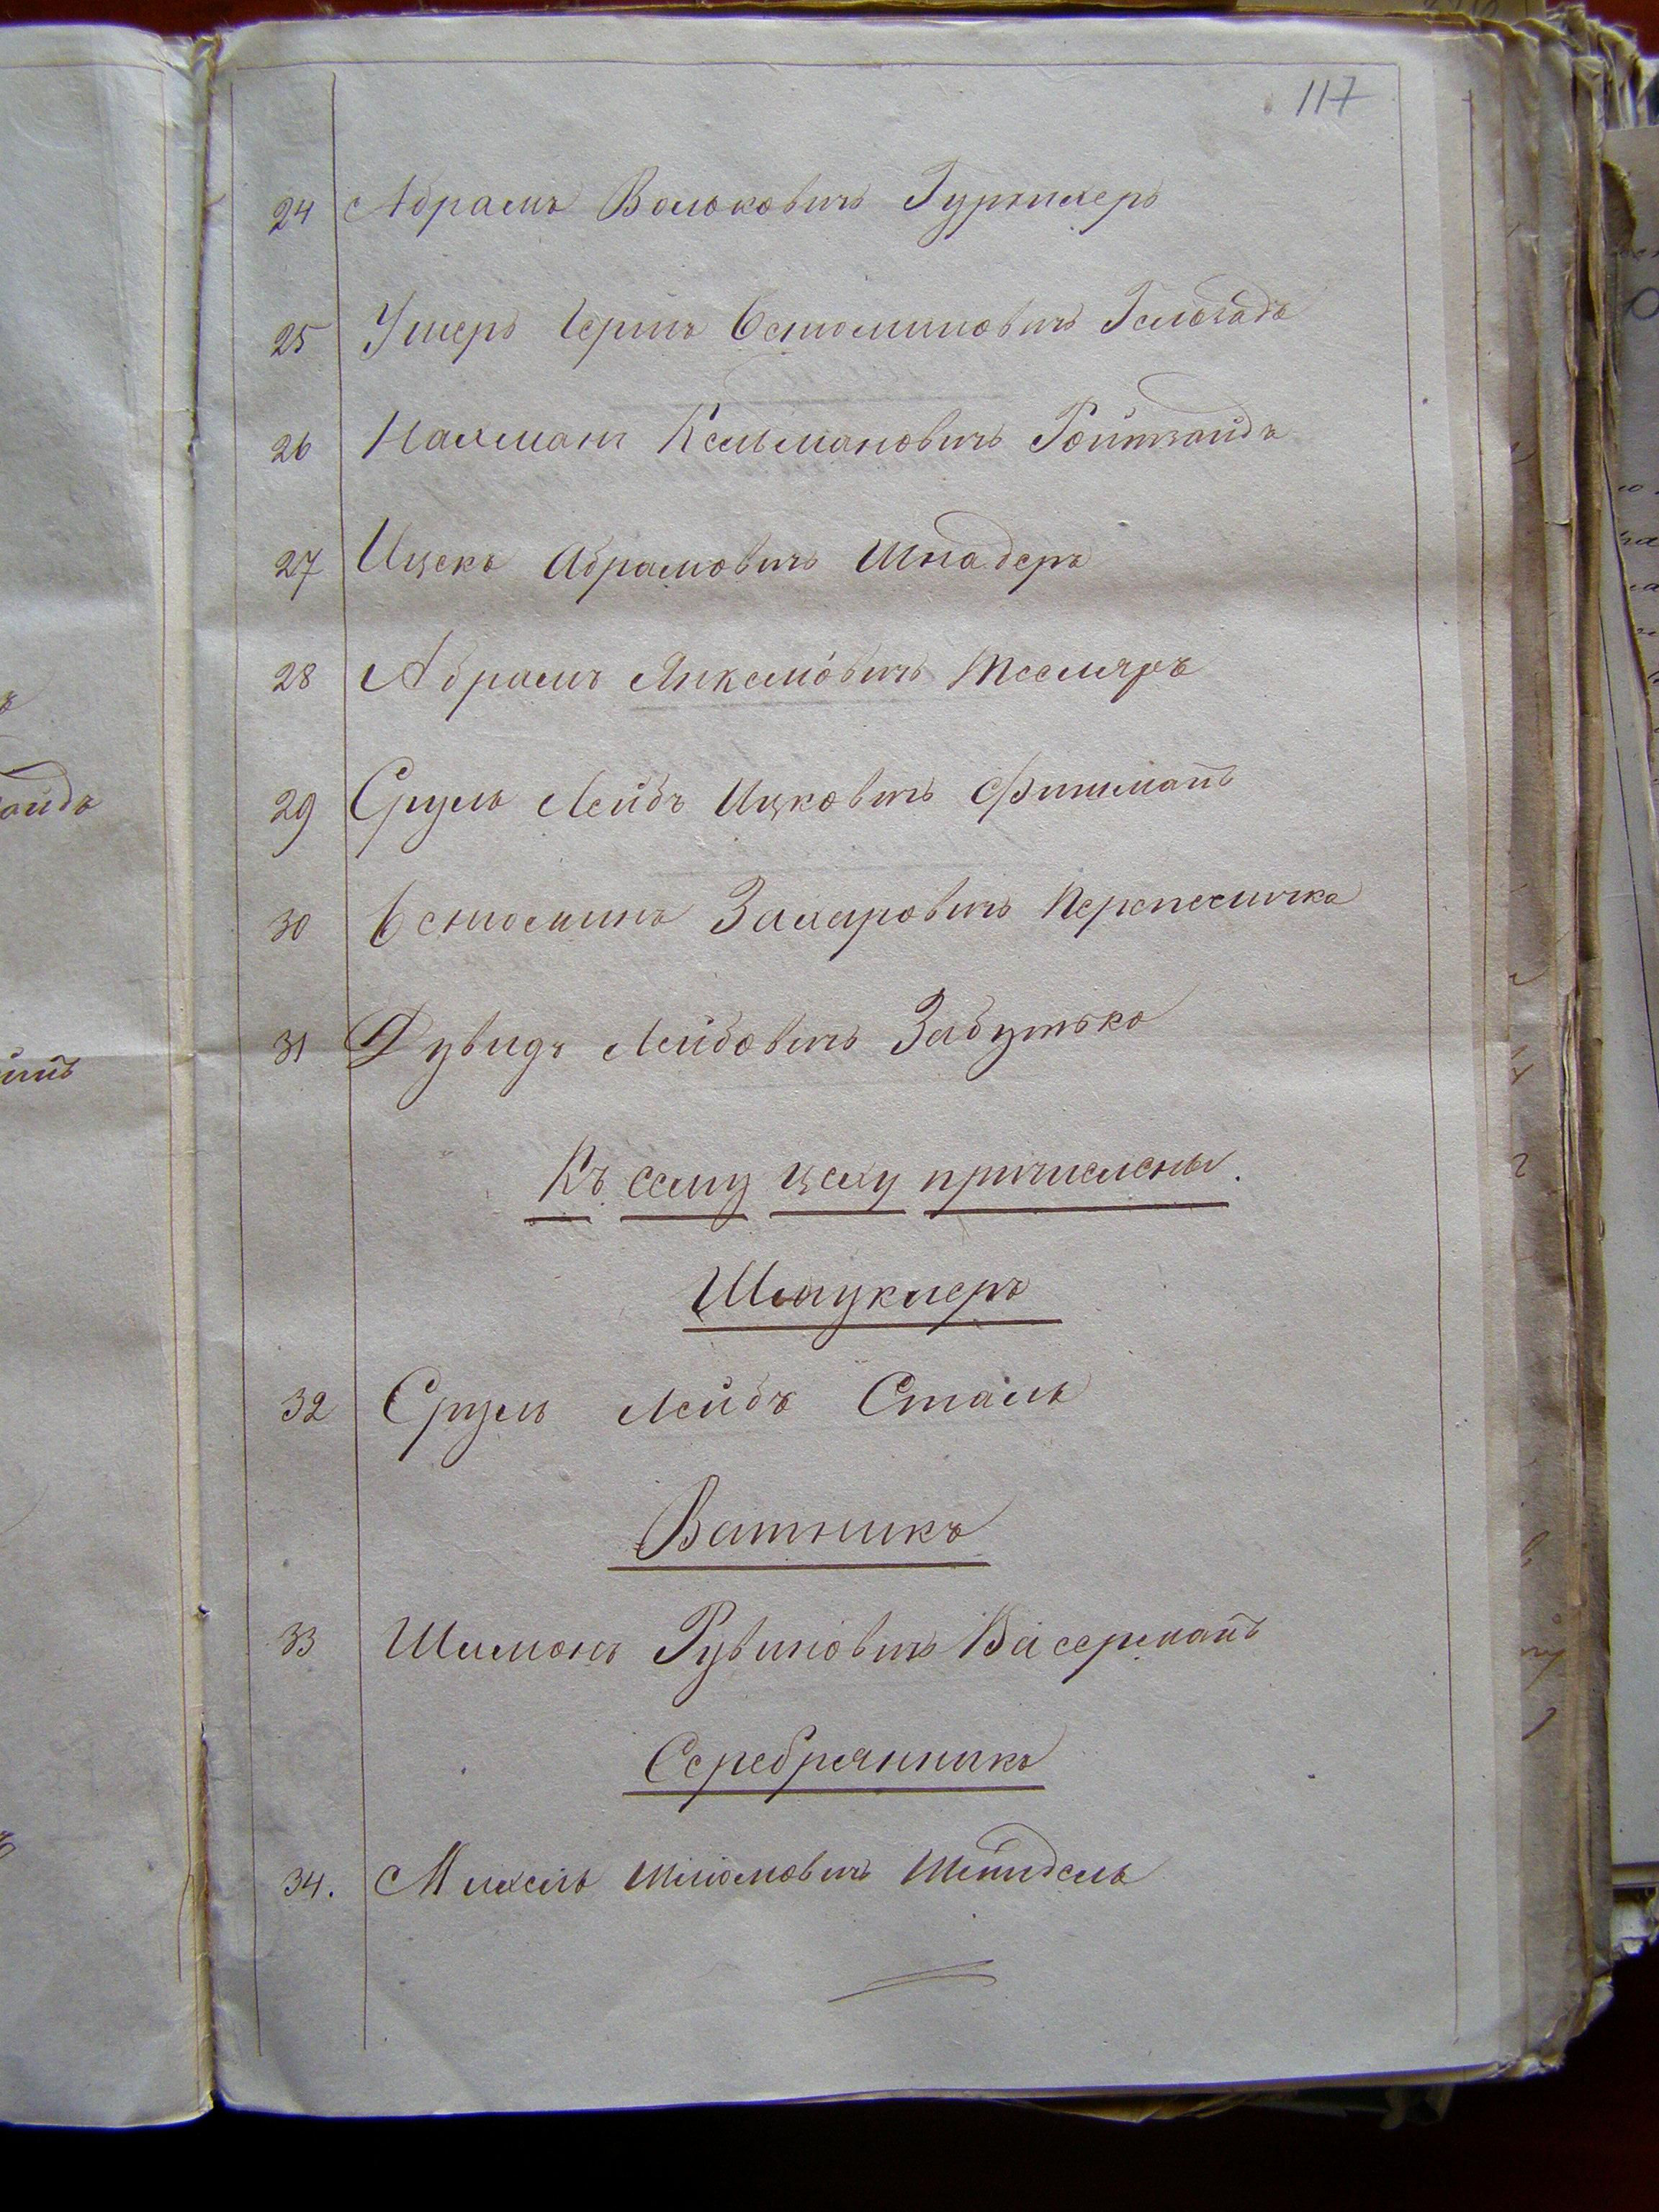 117
24 Абрамъ Волковичъ
25 Ушеръ Гершъ Бенюминовичъ
26 Нахманъ Кельмановичъ Ройтзайдъ
27 Ицекъ Абрамовичъ Шнадеръ
28 Абрамъ Янкелювичъ Тесляръ
29 Сруль Лейбъ Ицковичъ
30 Бенюминъ Захаровичъ Перепеличка
31 Дувидъ Лейбовичъ Забутько
Къ сему цеху причислены.
Шмуклеръ
32 Сруль Лейбъ Сталь
Ватникъ
33 Шимонъ Рувиновичъ Васерманъ
Серебряникъ
34. Михель Шліомовичъ